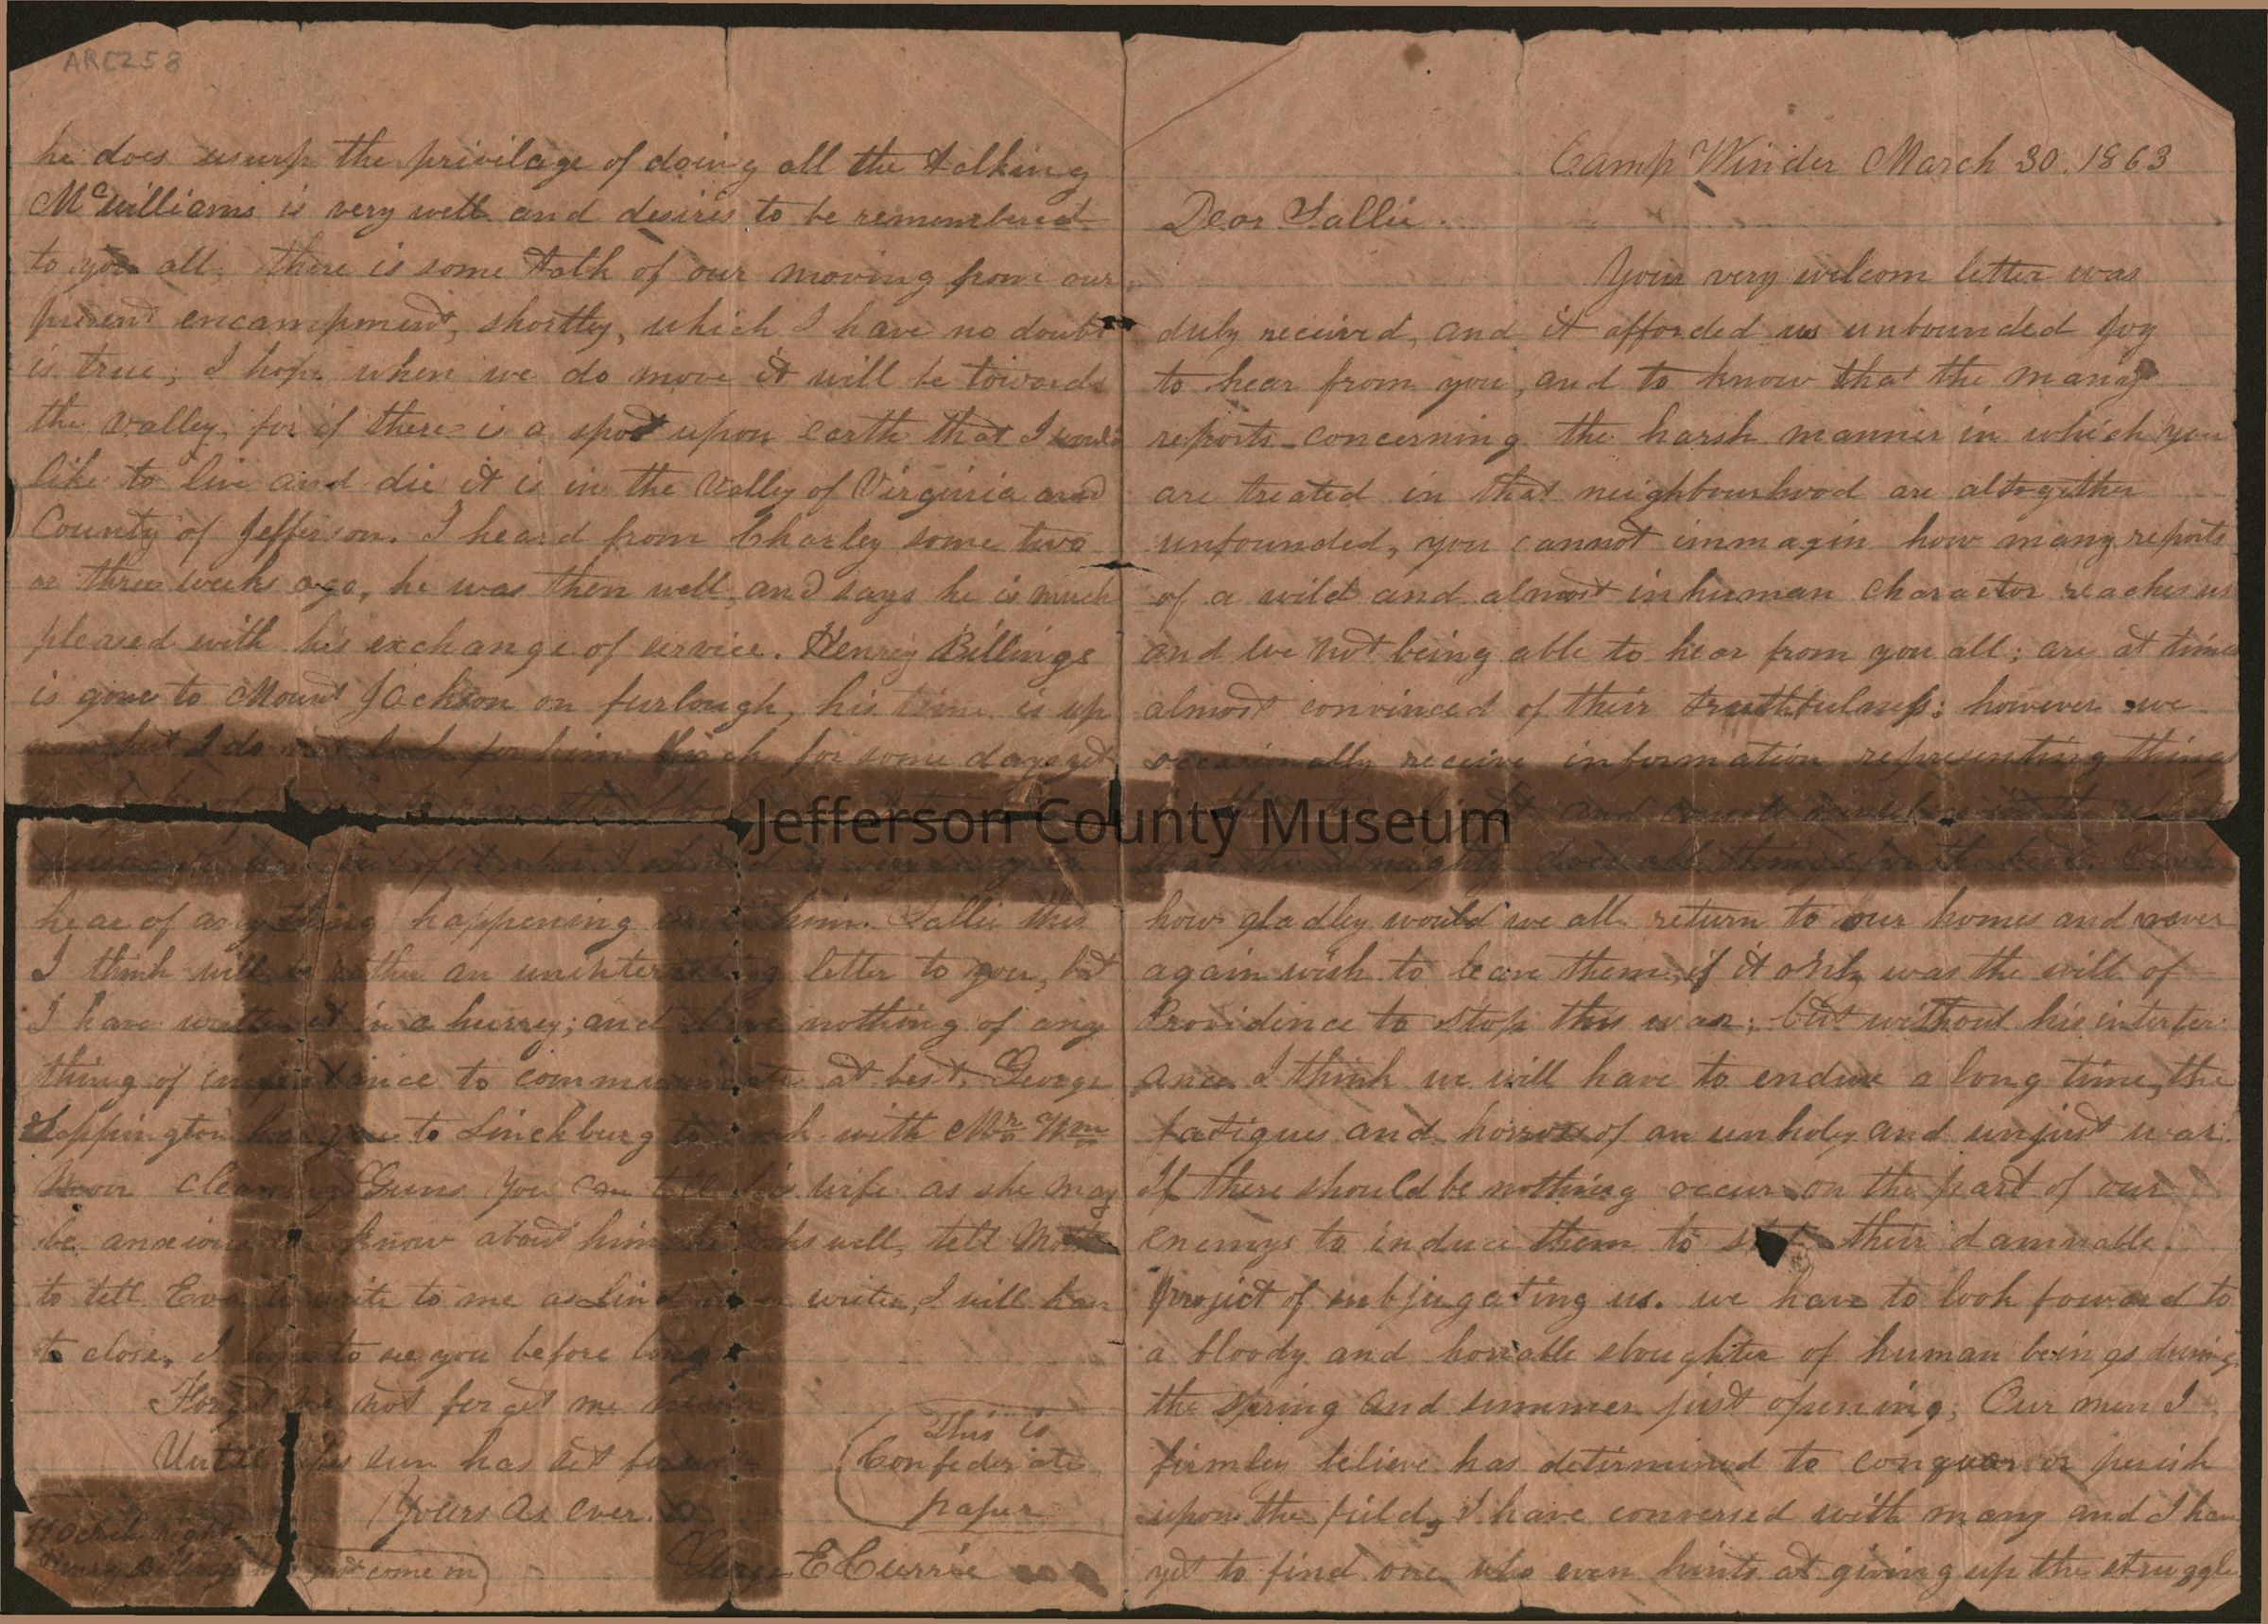 ARC258
Camp Winder March 30. 1863
Dear Sallie.
Your very welcom letter was
duly received, and it afforded us unbounded joy
to hear from you, and to know that the many
reports concerning the harsh manner in which you
are treated in that neighbourhood are altogether
unfounded, you cannot immagin how many reports
of a wild and almost inhuman character reaches us
and we not being able to hear from you all; are at times
almost convinced of their truthfulness; however we
occasionally receive information representing things
and
that the almighty does all things for the best.
how gladley would we all return to our homes and never
again wish to leave them, if it only was the will of
Providence to stop this war; but without his interfer-
ance I think we will have to endure a long time, the
fatigues and horrors of an unholy and unjust war.
If there should be nothing occur on the part of our
enemys to induce them to their damnable
project of subjugating us. we have to look foward to
a bloody and horrable slaughter of human beings during
the spring and summer just opening, Our men I
firmley believe has determined to conquor or perish
upon the field, I have conversed with many and I have
yet to find one who even hints at giving up the struggle
he does usurp the privilage of doing all the talking
McWilliams is very well and desires to be remembered
to you all, there is some talk of our moving from our
present encampment, shortley, which I have no doubt
is true; I hope when we do move it will be towards
the valley, for if there is a spot upon earth that I would
like to live and die it is in the Valley of Virginia and
County of Jefferson. I heard from Charley some two
or three weeks ago, he was then well, and says he is much
pleased with his exchange of service. Henry Billings
is gone to Mount Jackson on furlough, his time is up
now but I do not look for him back for some days yet
hear of any thing happening him. Sallie this
I think will be rather an uninteresting letter to you, but
I have written it in a hurrey; and have nothing of any
thing of importance to communicate at best, George
Sappington has gone to Linchburg to work with Mr Wm
cleaning Guns you can tell his wife as she may
be anxious to know about him he looks well, tell
to tell Eva to write to me as Lind never writes, I will have
to close, I hope to see you before long
Forget me not forget me never
Until lifes sun has set forever
Yours as ever.
George E Currie
(This is
Confederate
paper
11 Oclock night
Henry Billings has just come in)
Jefferson County Museum